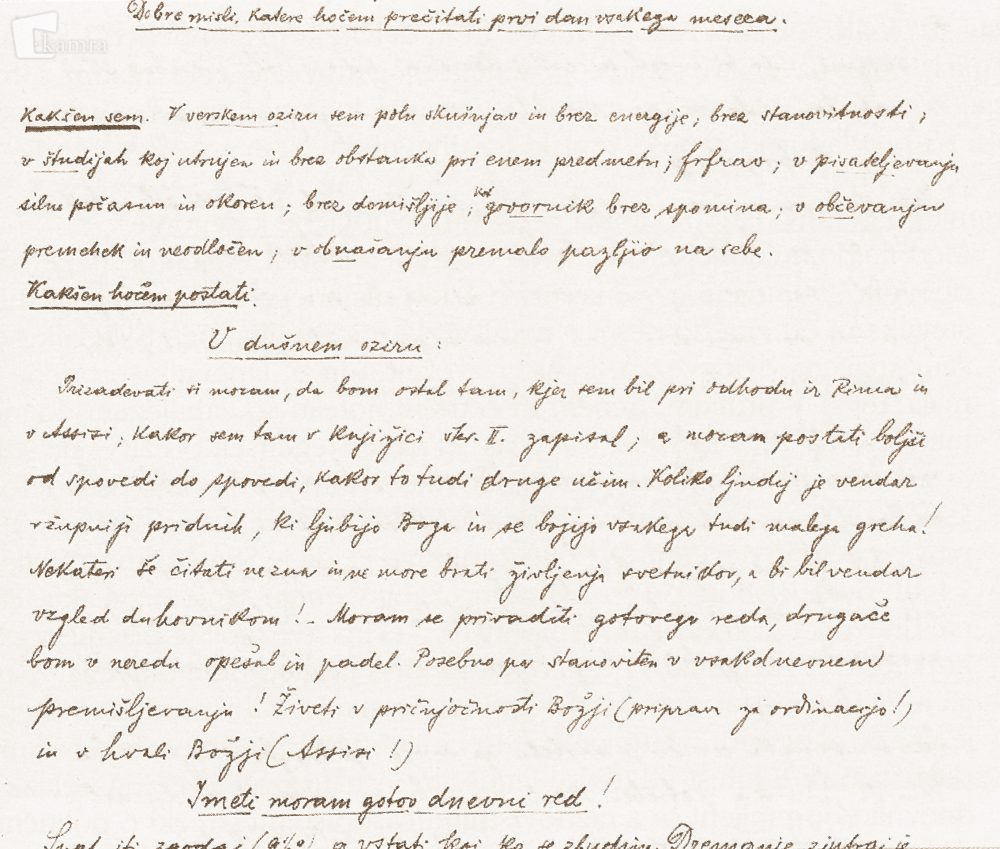 kamra
Dobre misli, katere hočem prečitati prvi dan vsakega meseca.
Kakšen sem. V verskem oziru sem poln skušnjav in brez energije; brez stanovitnosti;
v študijah koj utrujen in brez obstanka pri enem predmetu; frfrav; v pisateljevanju
silno počasen in okoren; brez domišljije; kot govornik brez spomina; v občevanju
premehek in neodločen; v obnašanju premalo pazljiv na sebe.
Kakšen hočem postati.
V dušnem oziru:
Prizadevati si moram, da bom ostal tam, kjer sem bil pri odhodu iz Rima in
v Assisi; kakor sem tam v knjižici str. II. zapisal; a moram postati boljši
od spovedi do spovedi, kakor to tudi druge učim. Koliko ljudij je vendar
v župniji pridnih, ki ljubijo Boga in se bojijo vsakega tudi malega greha!
Nekateri še čitati ne zna in ne more brati življenja svetnikov, a bi bil vendar
vzgled duhovnikom! - Moram se privaditi gotovega reda, drugače
bom v neredu opešal in padel. Posebno pa stanoviten v vsakdnevnem
premišljevanju! Živeti v pričujočnosti Božji (priprava za ordinacijo!)
in v hvali Božji (Assisi!)
Imeti moram gotov dnevni red!
Spat iti zgodaj (9½) a vstati koj ko se zbudim. Dremanje zjutraj je